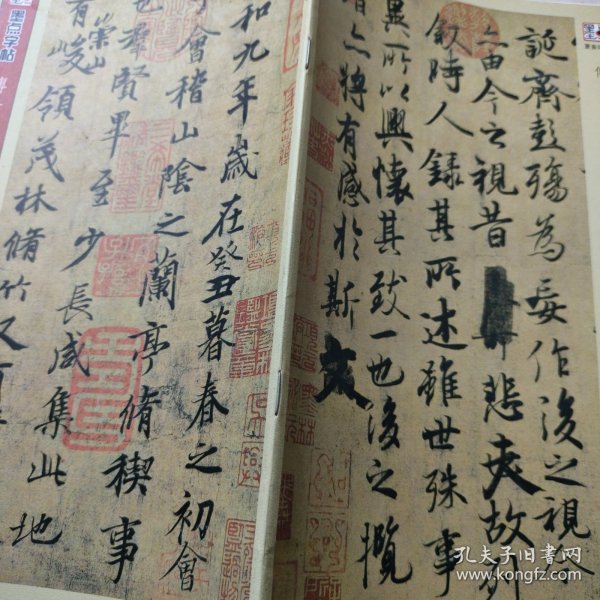 墨点字帖
誕齊彭殤為妄作後之視今
亦由今之視昔悲夫故列
敘時人錄其所述雖世殊事
異所以興懷其致一也後之攬
者亦將有感於斯文
和九年歲在癸丑暮春之初會
會稽山陰之蘭亭脩稧事
也羣賢畢至少長咸集此地
有崇山峻領茂林脩竹又
孔夫子旧书网
www.kongfz.com